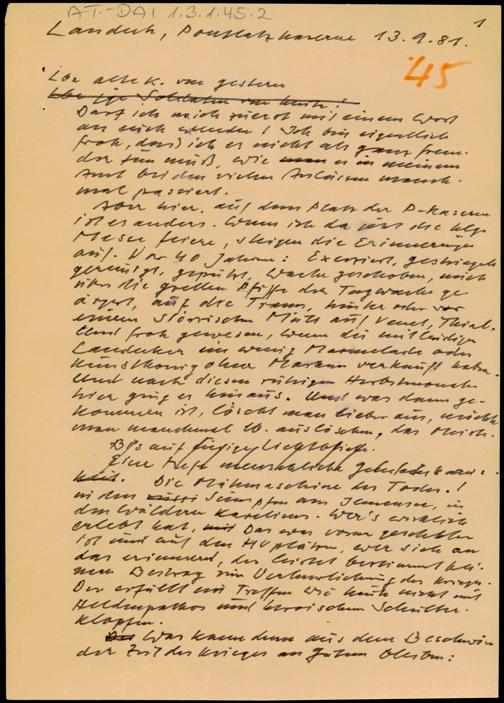 AT.-DAI 1.3.1.45.2
1
Landeck, Pontlatzkaserne 13.9.81.
45
Lbe alte K. von gestern
Lbe jge Soldaten von heute!
Darf ich mich zuerst mit einem Wort
an mich wenden! Ich bin eigentlich
froh, dass ich es nicht als ganz frem-
der tun muß, wie man es in meinem
Amt bei den vielen Anlässen manch-
mal passiert.
Aber hier, auf dem Platz der P-Kaserne
ist es anders. Wenn ich da jetzt die hlge
Messe feiere, steigen die Erinnerungen
auf. Vor 40 Jahren: Exerziert, gestriegelt
gereinigt, geputzt, Wache geschoben, mich
über die grellen Pfiffe der Tagwache ge
ärgert, auf die Trams, hinter oder vor
einem störrischen Muli auf Venet, Thial.
Und froh gewesen, wenn die mitleidigen
Landecker ein wenig Marmelade oder
Kunsthonig ohne Marken verkauft haben.
Und nach diesen ruhigen Herbstmonaten
hier ging es hinaus. Und was dann ge-
kommen ist, löscht man lieber aus, möchte
man manchmal lb. auslöschen, das
B's auf
Eine
Die Mähmaschine des Todes.!
in den Sümpfen am Ilmensee, in
den Wäldern Kareliens. Wer's wirklich
erlebt hat, Das was vorne geschehen
ist und auf den HV plätzen, wer sich an
das erinnernd, der leistet bestimmt kei-
nen Beitrag zur Verherrlichung des Krieges.
Der erfüllt ein Treffen wie heute nicht mit
Heldenpathos und heroischem Schulter-
klopfen.
Was kann denn aus dem Beschwören
der Zeit des Krieges an Gutem bleiben: